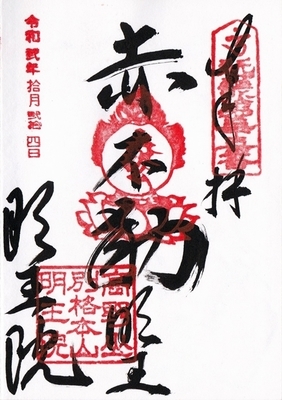 奉拝
赤不動明王
明王院
令和弐年拾月弐拾四日
高野山
別格本山
明王院